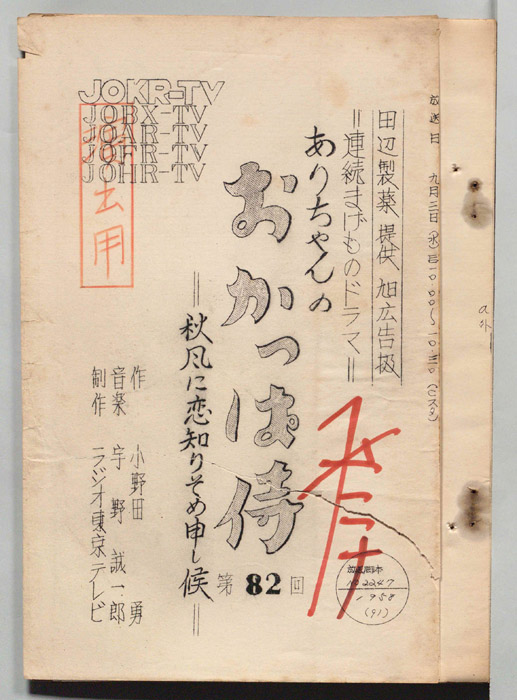 JOKR-TV
JOBX-TV
JOAR-TV
JOFR-TV
JOHR-TV
放送日 九月三日(水)
田辺製薬 提供 旭広告扱
=連続まげものドラマ=
ありちゃんの
おかっぱ侍
=秋風に恋知りそめ申し候=
第82回
作 小野田 勇
音楽 宇野誠一郎
制作 ラジオ東京テレビ
放送台本
No 2247
1958
(91)